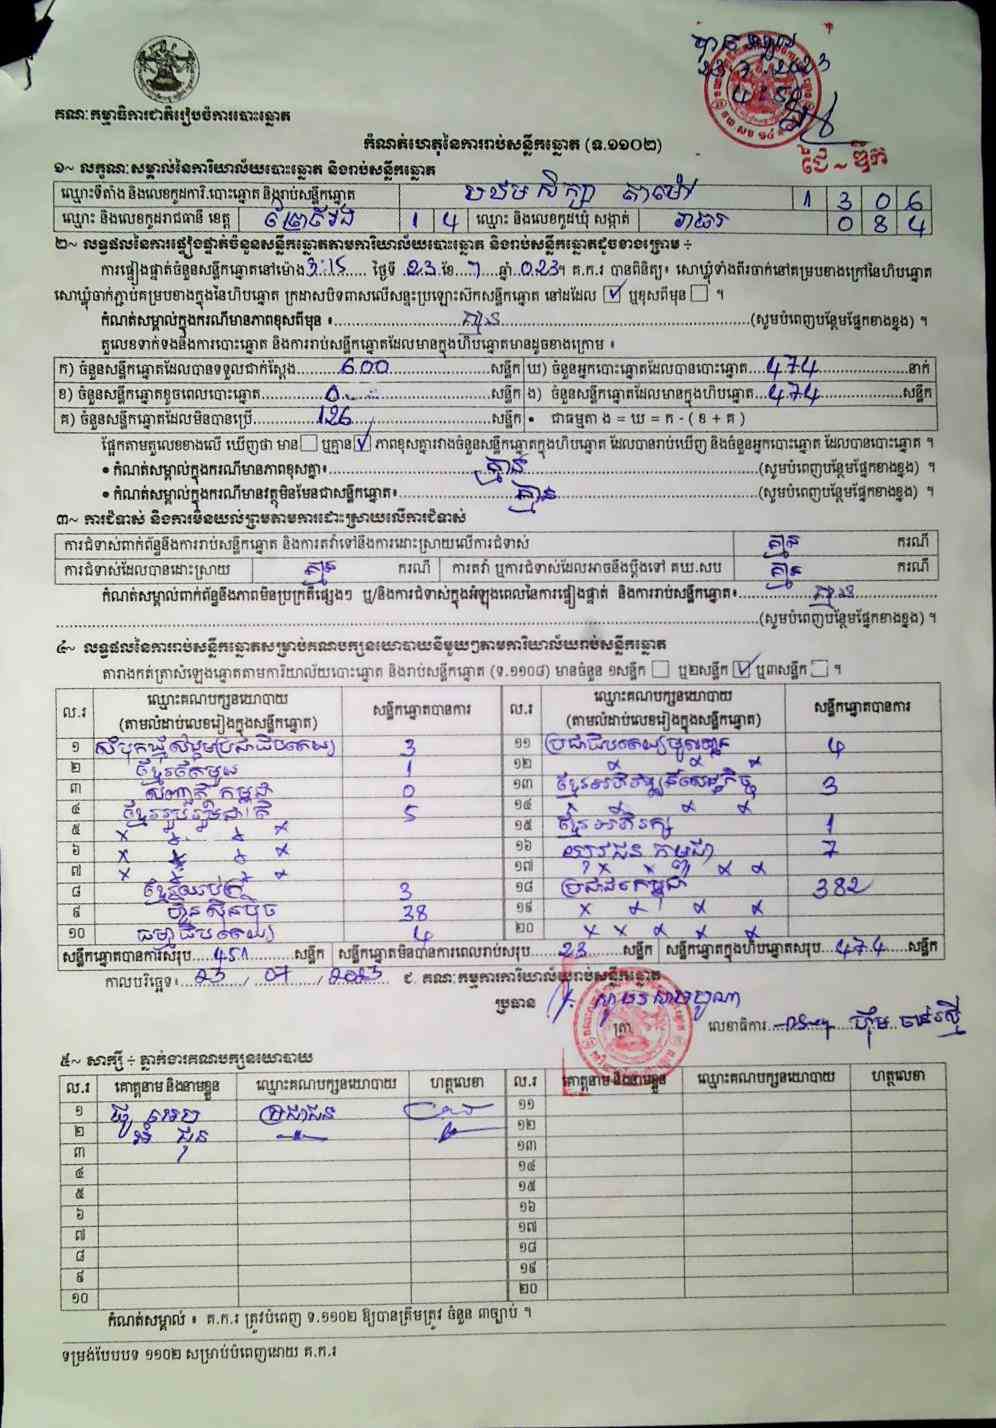 គណៈកម្មាធិការជាតិរៀបចំការបោះឆ្នោត
កំណត់ហេតុនៃការរាប់សន្លឹកឆ្នោត (ទ.១១០២)
១~ លក្ខណៈសម្គាល់នៃការិយាល័យបោះឆ្នោត និងរាប់សន្លឹកឆ្នោត
ឈ្មោះទីតាំង និងលេខកូដការិ.បោះឆ្នោត និងរាប់សន្លឹកឆ្នោត បឋមសិក្សា តាម៉ៅ 1 3 0 6
ឈ្មោះ និងលេខកូដរាជធានី ខេត្ត ព្រៃវែង 1 4 ឈ្មោះ និងលេខកូដឃុំ សង្កាត់ រាធរ 0 8 4
២~ លទ្ធផលនៃការផ្ទៀងផ្ទាត់ចំនួនសន្លឹកឆ្នោតតាមការិយាល័យបោះឆ្នោត និងរាប់សន្លឹកឆ្នោតដូចខាងក្រោម ÷
ការផ្ទៀងផ្ទាត់ចំនួនសន្លឹកឆ្នោតនៅម៉ោង 3:15 ថ្ងៃទី 23 ខែ 7 ឆ្នាំ 023។ គ.ក.រ បានពិនិត្យ៖ សោឃ្លុំទាំងពីរចាក់នៅគម្របខាងក្រៅនៃហិបឆ្នោត
សោឃ្លុំចាក់ភ្ជាប់គម្របខាងក្នុងនៃហិបឆ្នោត ក្រដាសបិទពាសលើសន្ទះប្រឡោះស៊កសន្លឹកឆ្នោត នៅដដែល ☑ ឬខុសពីមុន ☐ ។
កំណត់សម្គាល់ក្នុងករណីមានភាពខុសពីមុន ៖ គ្មាន (សូមបំពេញបន្ថែមផ្នែកខាងខ្នង) ។
តួលេខទាក់ទងនឹងការបោះឆ្នោត និងការរាប់សន្លឹកឆ្នោតដែលមានក្នុងហិបឆ្នោតមានដូចខាងក្រោម ៖
ក) ចំនួនសន្លឹកឆ្នោតដែលបានទទួលជាក់ស្តែង 600 សន្លឹក ឃ) ចំនួនអ្នកបោះឆ្នោតដែលបានបោះឆ្នោត 474 នាក់
ខ) ចំនួនសន្លឹកឆ្នោតខូចពេលបោះឆ្នោត 0 សន្លឹក ង) ចំនួនសន្លឹកឆ្នោតដែលមានក្នុងហិបឆ្នោត 474 សន្លឹក
គ) ចំនួនសន្លឹកឆ្នោតដែលមិនបានប្រើ 126 សន្លឹក • ជាធម្មតា ង = ឃ = ក - ( ខ + គ )
ផ្អែកតាមតួលេខខាងលើ ឃើញថា មាន ☐ ឬគ្មាន ☑ ភាពខុសគ្នារវាងចំនួនសន្លឹកឆ្នោតក្នុងហិបឆ្នោត ដែលបានរាប់ឃើញ និងចំនួនអ្នកបោះឆ្នោត ដែលបានបោះឆ្នោត ។
• កំណត់សម្គាល់ក្នុងករណីមានភាពខុសគ្នា៖ គ្មាន (សូមបំពេញបន្ថែមផ្នែកខាងខ្នង) ។
• កំណត់សម្គាល់ក្នុងករណីមានវត្ថុមិនមែនជាសន្លឹកឆ្នោត៖ គ្មាន (សូមបំពេញបន្ថែមផ្នែកខាងខ្នង) ។
៣~ ការជំទាស់ និងការមិនយល់ព្រមតាមការដោះស្រាយលើការជំទាស់
ការជំទាស់ពាក់ព័ន្ធនឹងការរាប់សន្លឹកឆ្នោត និងការតវ៉ាទៅនឹងការដោះស្រាយលើការជំទាស់ គ្មាន ករណី
ការជំទាស់ដែលបានដោះស្រាយ គ្មាន ករណី ការតវ៉ា ឬការជំទាស់ដែលអាចនឹងប្តឹងទៅ គឃ.សប គ្មាន ករណី
កំណត់សម្គាល់ពាក់ព័ន្ធនឹងភាពមិនប្រក្រតីផ្សេងៗ ឬ/និងការជំទាស់ក្នុងអំឡុងពេលនៃការផ្ទៀងផ្ទាត់ និងការរាប់សន្លឹកឆ្នោត៖ គ្មាន
(សូមបំពេញបន្ថែមផ្នែកខាងខ្នង) ។
៤~ លទ្ធផលនៃការរាប់សន្លឹកឆ្នោតសម្រាប់គណបក្សនយោបាយនីមួយៗតាមការិយាល័យរាប់សន្លឹកឆ្នោត
តារាងកត់ត្រាសំឡេងឆ្នោតតាមការិយាល័យបោះឆ្នោត និងរាប់សន្លឹកឆ្នោត (ទ.១១០៨) មានចំនួន ១សន្លឹក ☐ ឬ២សន្លឹក ☑ ឬ៣សន្លឹក ☐ ។
ល.រ ឈ្មោះគណបក្សនយោបាយ (តាមលំដាប់លេខរៀងក្នុងសន្លឹកឆ្នោត) សន្លឹកឆ្នោតបានការ ល.រ ឈ្មោះគណបក្សនយោបាយ (តាមលំដាប់លេខរៀងក្នុងសន្លឹកឆ្នោត) សន្លឹកឆ្នោតបានការ
១ សំបុកឃ្មុំសង្គមប្រជាធិបតេយ្យ 3 ១១ ប្រជាធិបតេយ្យមូលដ្ឋាន 4
២ ខ្មែរតែមួយ 1 ១២ x x x
៣ សញ្ជាតិកម្ពុជា 0 ១៣ ខ្មែរអភិវឌ្ឍន៍សេដ្ឋកិច្ច 3
៤ ខ្មែររួបរួមជាតិ 5 ១៤ x x x
៥ x x x x ១៥ ខ្មែរអភិរក្ស 1
៦ x x x x ១៦ យុវជនកម្ពុជា 7
៧ x x x x ១៧ x x x x x
៨ ខ្មែរឈប់ក្រ 3 ១៨ ប្រជាជនកម្ពុជា 382
៩ ហ៊្វុនស៊ិនប៉ិច 38 ១៩ x x x x
១០ ធម្មាធិបតេយ្យ 4 ២០ x x x x x
សន្លឹកឆ្នោតបានការសរុប 451 សន្លឹក សន្លឹកឆ្នោតមិនបានការពេលរាប់សរុប 23 សន្លឹក សន្លឹកឆ្នោតក្នុងហិបឆ្នោតសរុប 474 សន្លឹក
កាលបរិច្ឆេទ៖ 23 / 07 / 2023 ជ. គណៈកម្មការការិយាល័យរាប់សន្លឹកឆ្នោត
ប្រធាន
ត្រា លេខាធិការ
៥~ សាក្សី ÷ ភ្នាក់ងារគណបក្សនយោបាយ
ល.រ គោត្តនាម និងនាមខ្លួន ឈ្មោះគណបក្សនយោបាយ ហត្ថលេខា ល.រ គោត្តនាម និងនាមខ្លួន ឈ្មោះគណបក្សនយោបាយ ហត្ថលេខា
១ ប្រជាជន ១១
២ ១២
៣ ១៣
៤ ១៤
៥ ១៥
៦ ១៦
៧ ១៧
៨ ១៨
៩ ១៩
១០ ២០
កំណត់សម្គាល់ ៖ គ.ក.រ ត្រូវបំពេញ ទ.១១០២ ឱ្យបានត្រឹមត្រូវ ចំនួន ៣ច្បាប់ ។
ទម្រង់បែបបទ ១១០២ សម្រាប់បំពេញដោយ គ.ក.រ